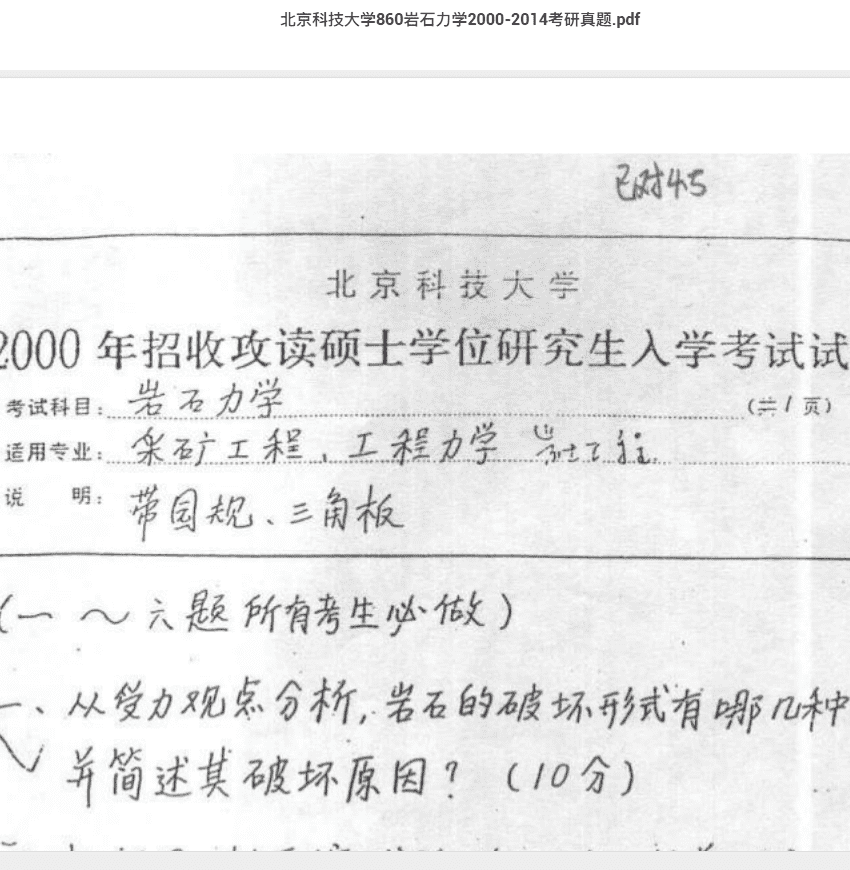 北京科技大学860岩石力学2000-2014考研真题.pdf
已对45
北京科技大学
2000年招收攻读硕士学位研究生入学考试试
考试科目： 岩石力学 (共1页)
适用专业： 采矿工程、工程力学 岩土工程
说 明： 带圆规、三角板
(一～六题所有考生必做)
一、从受力观点分析,岩石的破坏形式有哪几种
并简述其破坏原因? (10分)